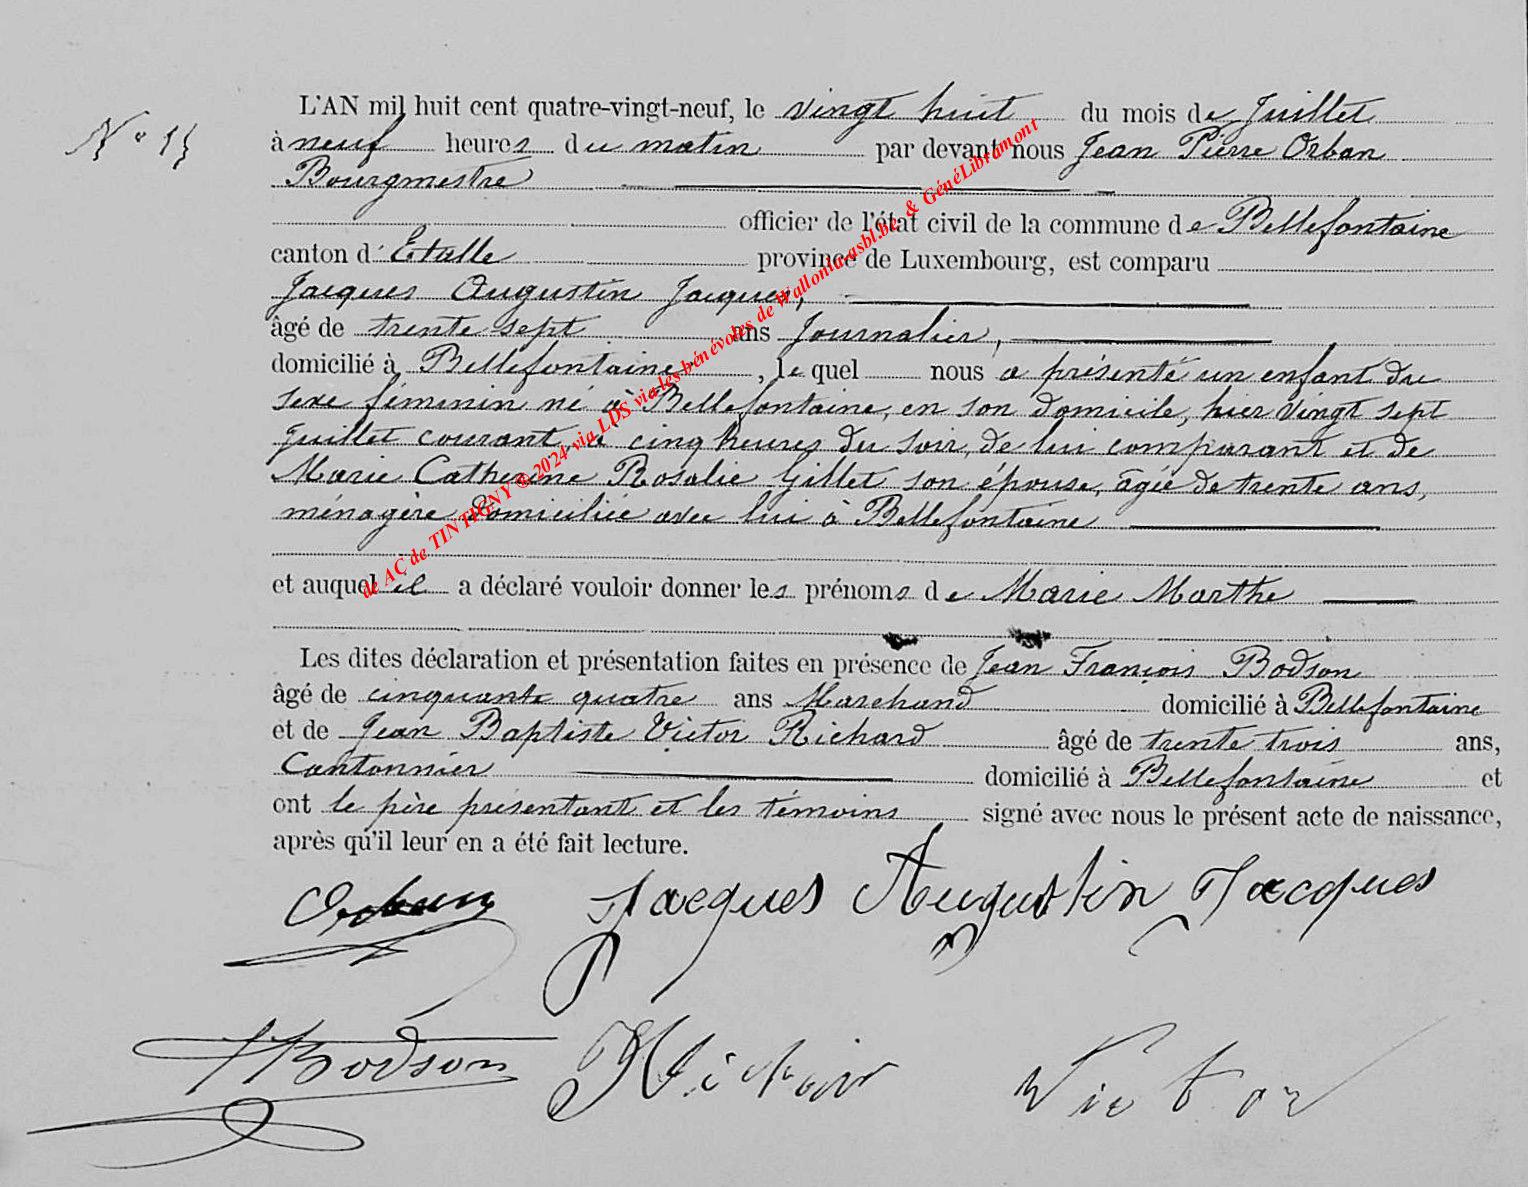 L'AN mil huit cent quatre-vingt-neuf, le vingt huit du mois de Juillet
à neuf heures du matin par devant nous Jean Pierre Orban
Bourgmestre
officier de l'état civil de la commune de Bellefontaine
canton d'Etalle province de Luxembourg, est comparu
Jacques Augustin Jacques,
âgé de trente sept ans Journalier,
domicilié à Bellefontaine, le quel nous a présenté un enfant du
sexe féminin né à Bellefontaine, en son domicile, hier vingt sept
juillet courant, à cinq heures du soir, de lui comparant et de
Marie Catherine Rosalie Gillet son épouse, âgée de trente ans,
ménagère domiciliée avec lui à Bellefontaine
et auquel il a déclaré vouloir donner les prénoms de Marie Marthe
Les dites déclaration et présentation faites en présence de Jean François Bodson
âgé de cinquante quatre ans Marchand domicilié à Bellefontaine
et de Jean Baptiste Victor Richard âgé de trente trois ans,
Cantonnier domicilié à Bellefontaine et
ont le père présentant et les témoins signé avec nous le présent acte de naissance,
après qu'il leur en a été fait lecture.
Orban Jacques Augustin Jacques
Bodson Victor
de AÇ de TINTIGNY ® 2024 via LDS via les bénévoles de Wallonia asbl.be & GénéLibramont